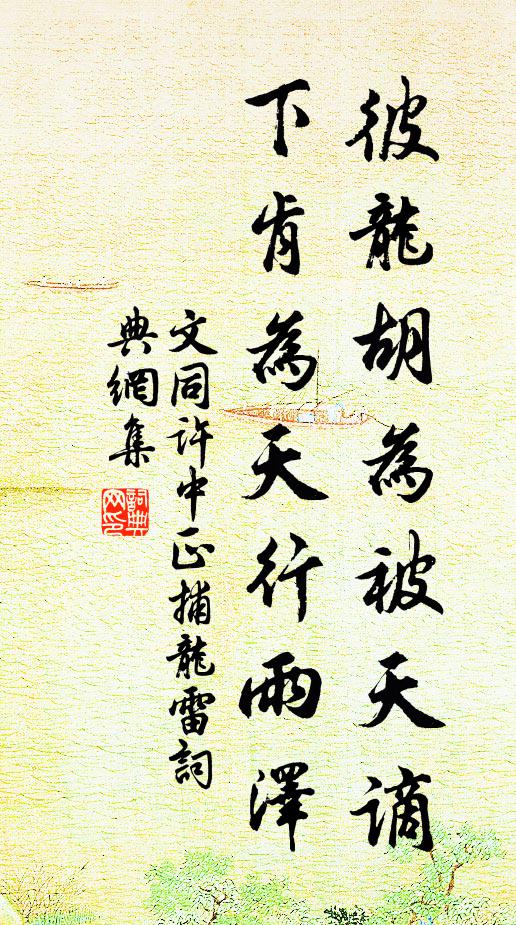 彼龍胡為被天謫
下肯為天行雨澤
文同許中正捕龍雷詞
典網集
詞典網印